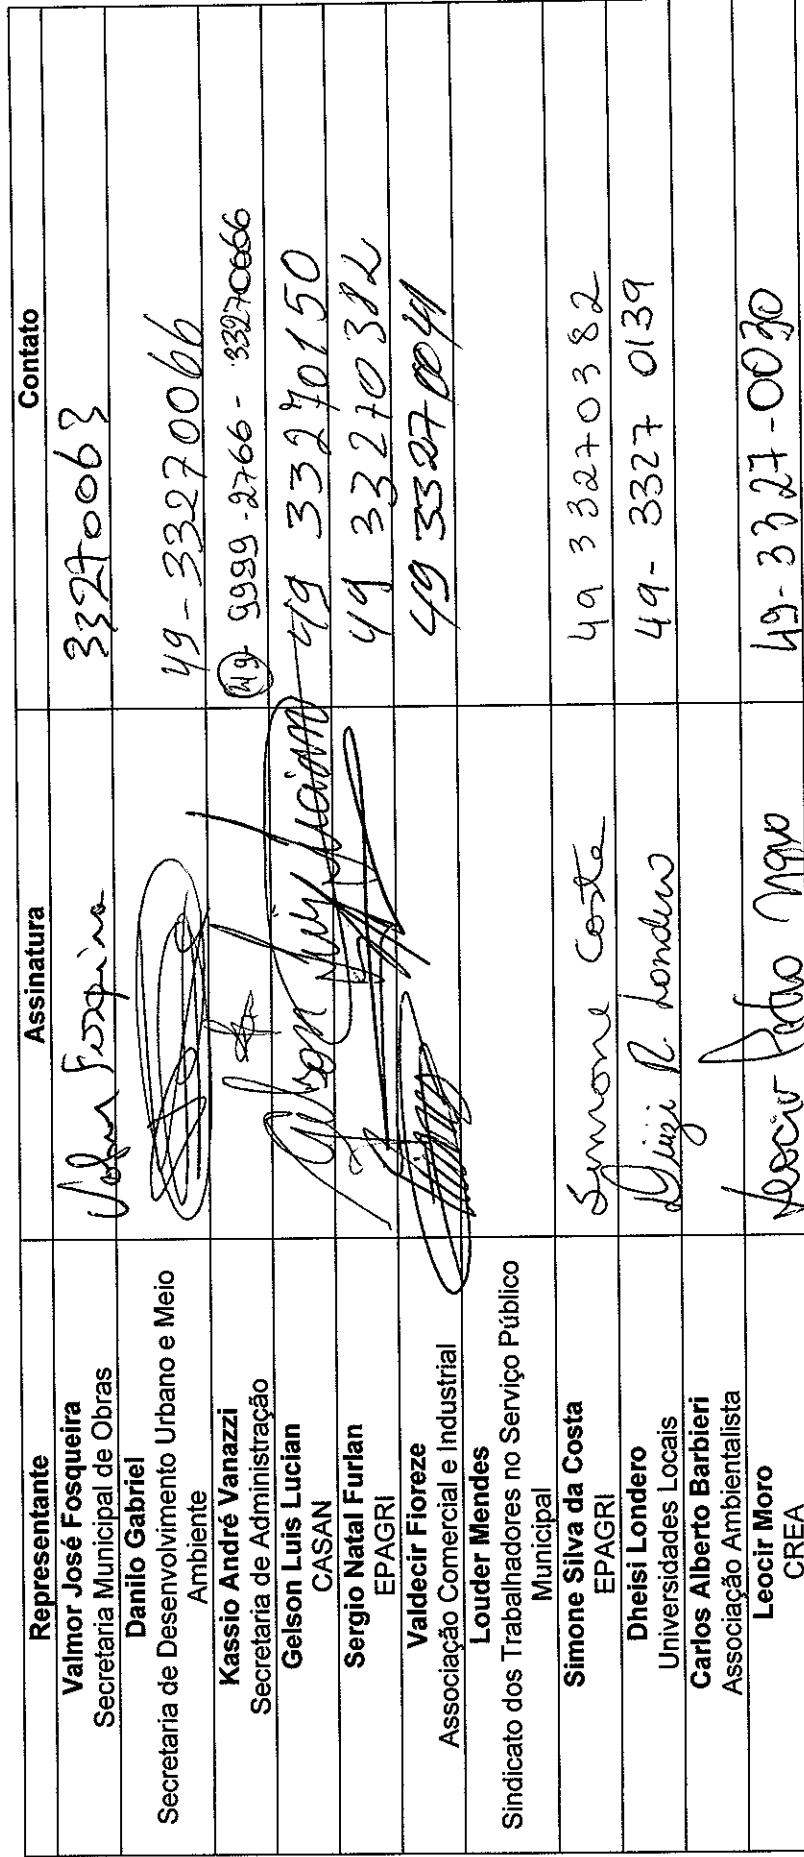 Representante Assinatura Contato
Valmor José Fosqueira
Secretaria Municipal de Obras
33270063
Danilo Gabriel
Secretaria de Desenvolvimento Urbano e Meio
Ambiente
49-33270066
Kassio André Vanazzi
Secretaria de Administração
49 9999-2766 - 33270066
Gelson Luis Lucian
CASAN
49 33270150
Sergio Natal Furlan
EPAGRI
49 33270382
Valdecir Fioreze
Associação Comercial e Industrial
49 33270041
Louder Mendes
Sindicato dos Trabalhadores no Serviço Público
Municipal
Simone Silva da Costa
EPAGRI
Simone Costa
49 33270382
Dheisi Londero
Universidades Locais
R. Londero
49- 3327 0139
Carlos Alberto Barbieri
Associação Ambientalista
Leocir Moro
CREA
Leocir Moro
49-3327-0030